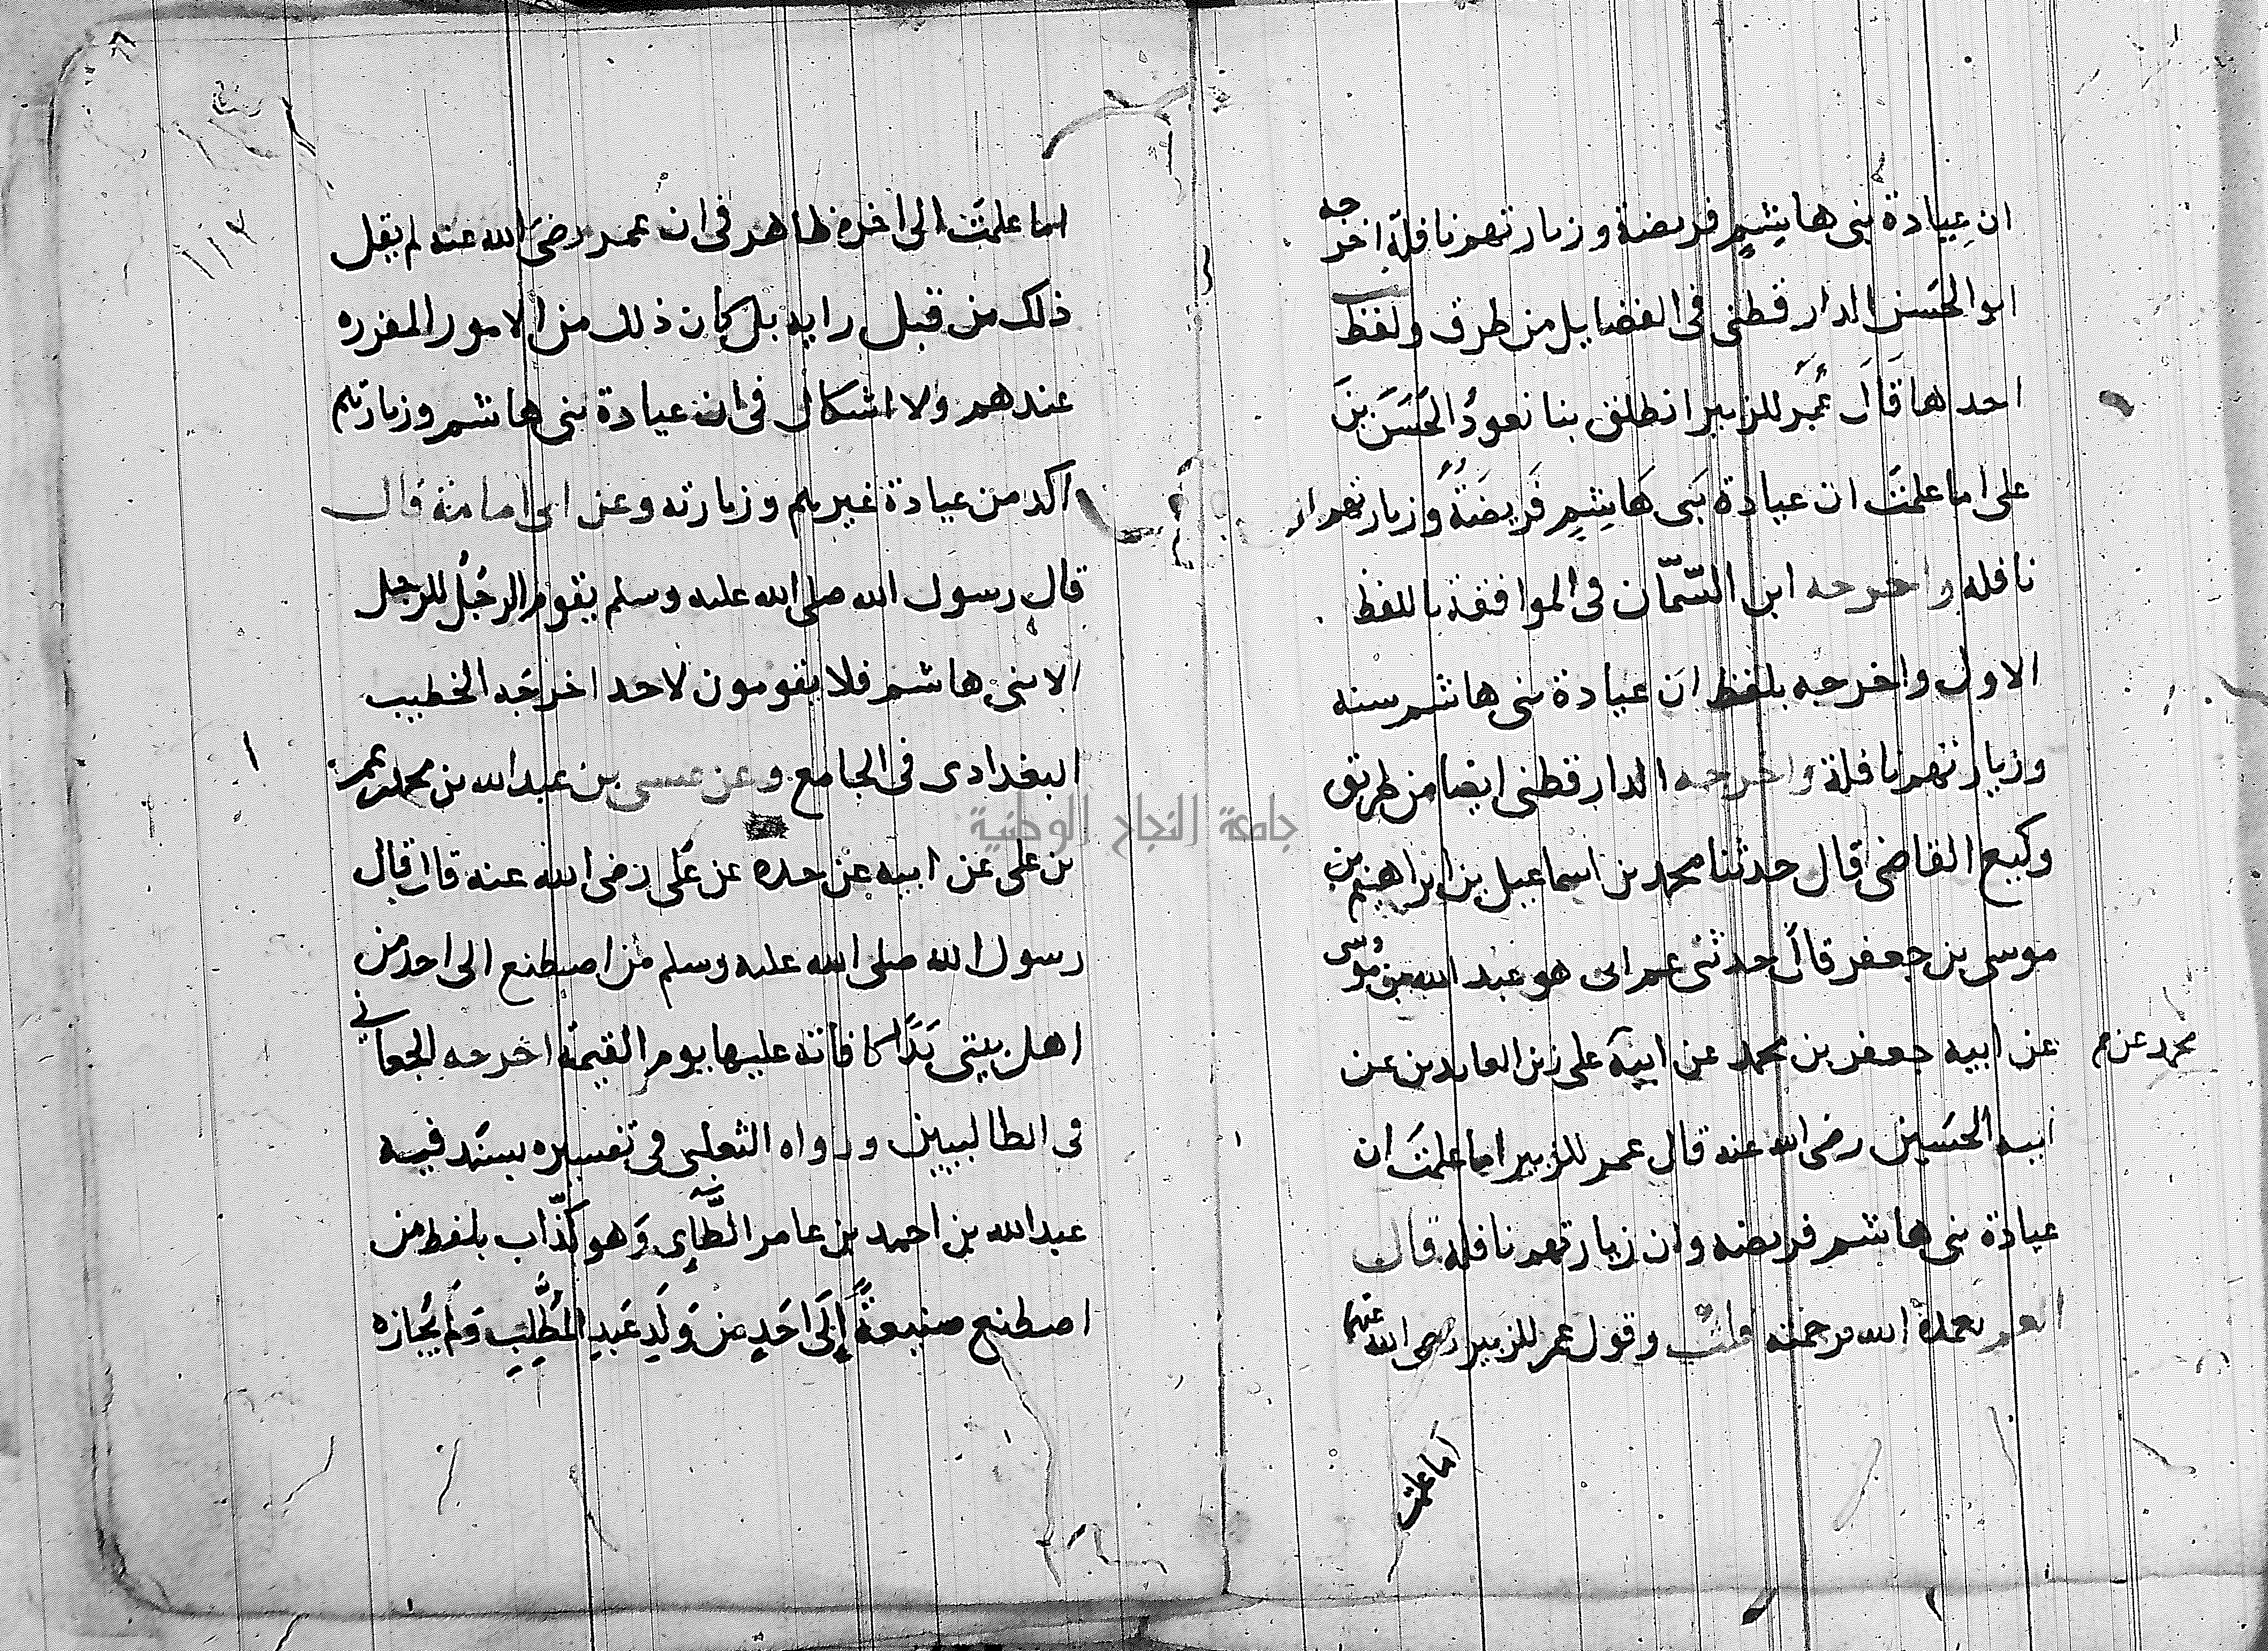 ان عيادة بنى هاشم فريضة وزيارتهم نافلة اخرجه
ابو الحسن الدارقطنى فى الفضايل من طرق ولفظ
احدها قال عمر للزبير انطلق بنا نعود الحسن بن
على اما علمت ان عيادة بنى هاشم فريضة وزيارتهم
نافله واخرجه ابن السمّان فى الموافقة باللفظ
الاول واخرجه بلفظ ان عيادة بنى هاشم سنه
وزيارتهم نافلة واخرجه الدارقطنى ايضا من طريق
وكيع القاضى قال حدثنا محمد بن اسماعيل بن ابراهيم بن
موسى بن جعفر قال حدثنى عم ابى هو عبد الله بن موسى
عن ابيه جعفر بن محمد عن ابيه على زين العابدين عن
محمد عن
ابيه الحسين رضى الله عنه قال عمر للزبير اما علمت ان
عيادة بنى هاشم فريضه وان زيارتهم نافله قال
تغمده الله برحمته قلت وقول عمر للزبير رضى الله عنهما
اما علمت
١١٣
اما علمت الى اخره ظاهر فى ان عمر رضى الله عنه لم يقل
ذلك من قبل رايه بل كان ذلك من الامور المقرره
عندهم ولا اشكال فى ان عيادة بنى هاشم وزيارتهم
اكد من عيادة غيرهم وزيارته وعن ابى امامة قال
قال رسول الله صلى الله عليه وسلم يقوم الرجُلُ للرجل
الا بنى هاشم فلا يقومون لاحد اخرجه الخطيب
البغدادى فى الجامع وعن عيسى بن عبد الله بن محمد بن عمر
بن على عن ابيه عن جده عن على رضى الله عنه قال قال
رسول الله صلى الله عليه وسلم من اصطنع الى احد من
اهل بيتى يَدًا كافاته عليها يوم القيمة اخرجه الجعابى
فى الطالبيين ورواه الثعلبى فى تفسيره بسند فيه
عبد الله بن احمد بن عامر الطَّاىِ وَهو كذّاب بلفظ من
اصطنع صنيعةً إِلَى اَحَدٍ من وَلَدِ عَبدِ المُطَّلِبِ وَلَم يُجَازه
جامعة النجاح الوطنية